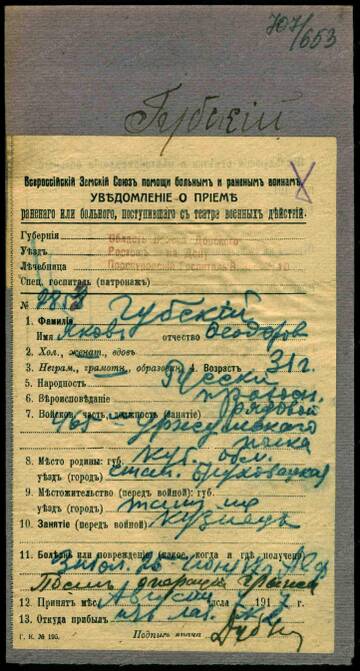 707/653
Губскій
Всероссійскій Земскій Союзъ помощи больнымъ и раненымъ воинамъ
УВѢДОМЛЕНІЕ О ПРІЕМѢ
раненаго или больного, поступившаго съ театра военныхъ дѣйствій.
Губернія
Область Войска Донского
Уѣздъ
Ростовъ на Дону
Лѣчебница
Спец. госпиталь (патронажъ)
№
1. Фамилія Губскій
Имя Яковъ отчество Феодоров
2. Хол., женат., вдовъ
3. Неграм., грамотн., образован. 4. Возрастъ 31 г.
5. Народность Русскій
6. Вѣроисповѣданіе Правосл.
7. Войсков. часть, должность (занятіе) рядовой
465 Уржумскаго
полка
8. Мѣсто родины: губ. Куб. обл.
уѣздъ (городъ) стан.
9. Мѣстожительство (передъ войной): губ.
уѣздъ (городъ)
10. Занятіе (передъ войной) Кузнецъ
11. Болѣзнь или поврежденіи (какое, когда и гдѣ получено)
Послѣ операціи грыжи
12. Принятъ мѣс. Августа числа 1917 г.
13. Откуда прибылъ
Г. К. № 195.
Подпись врача